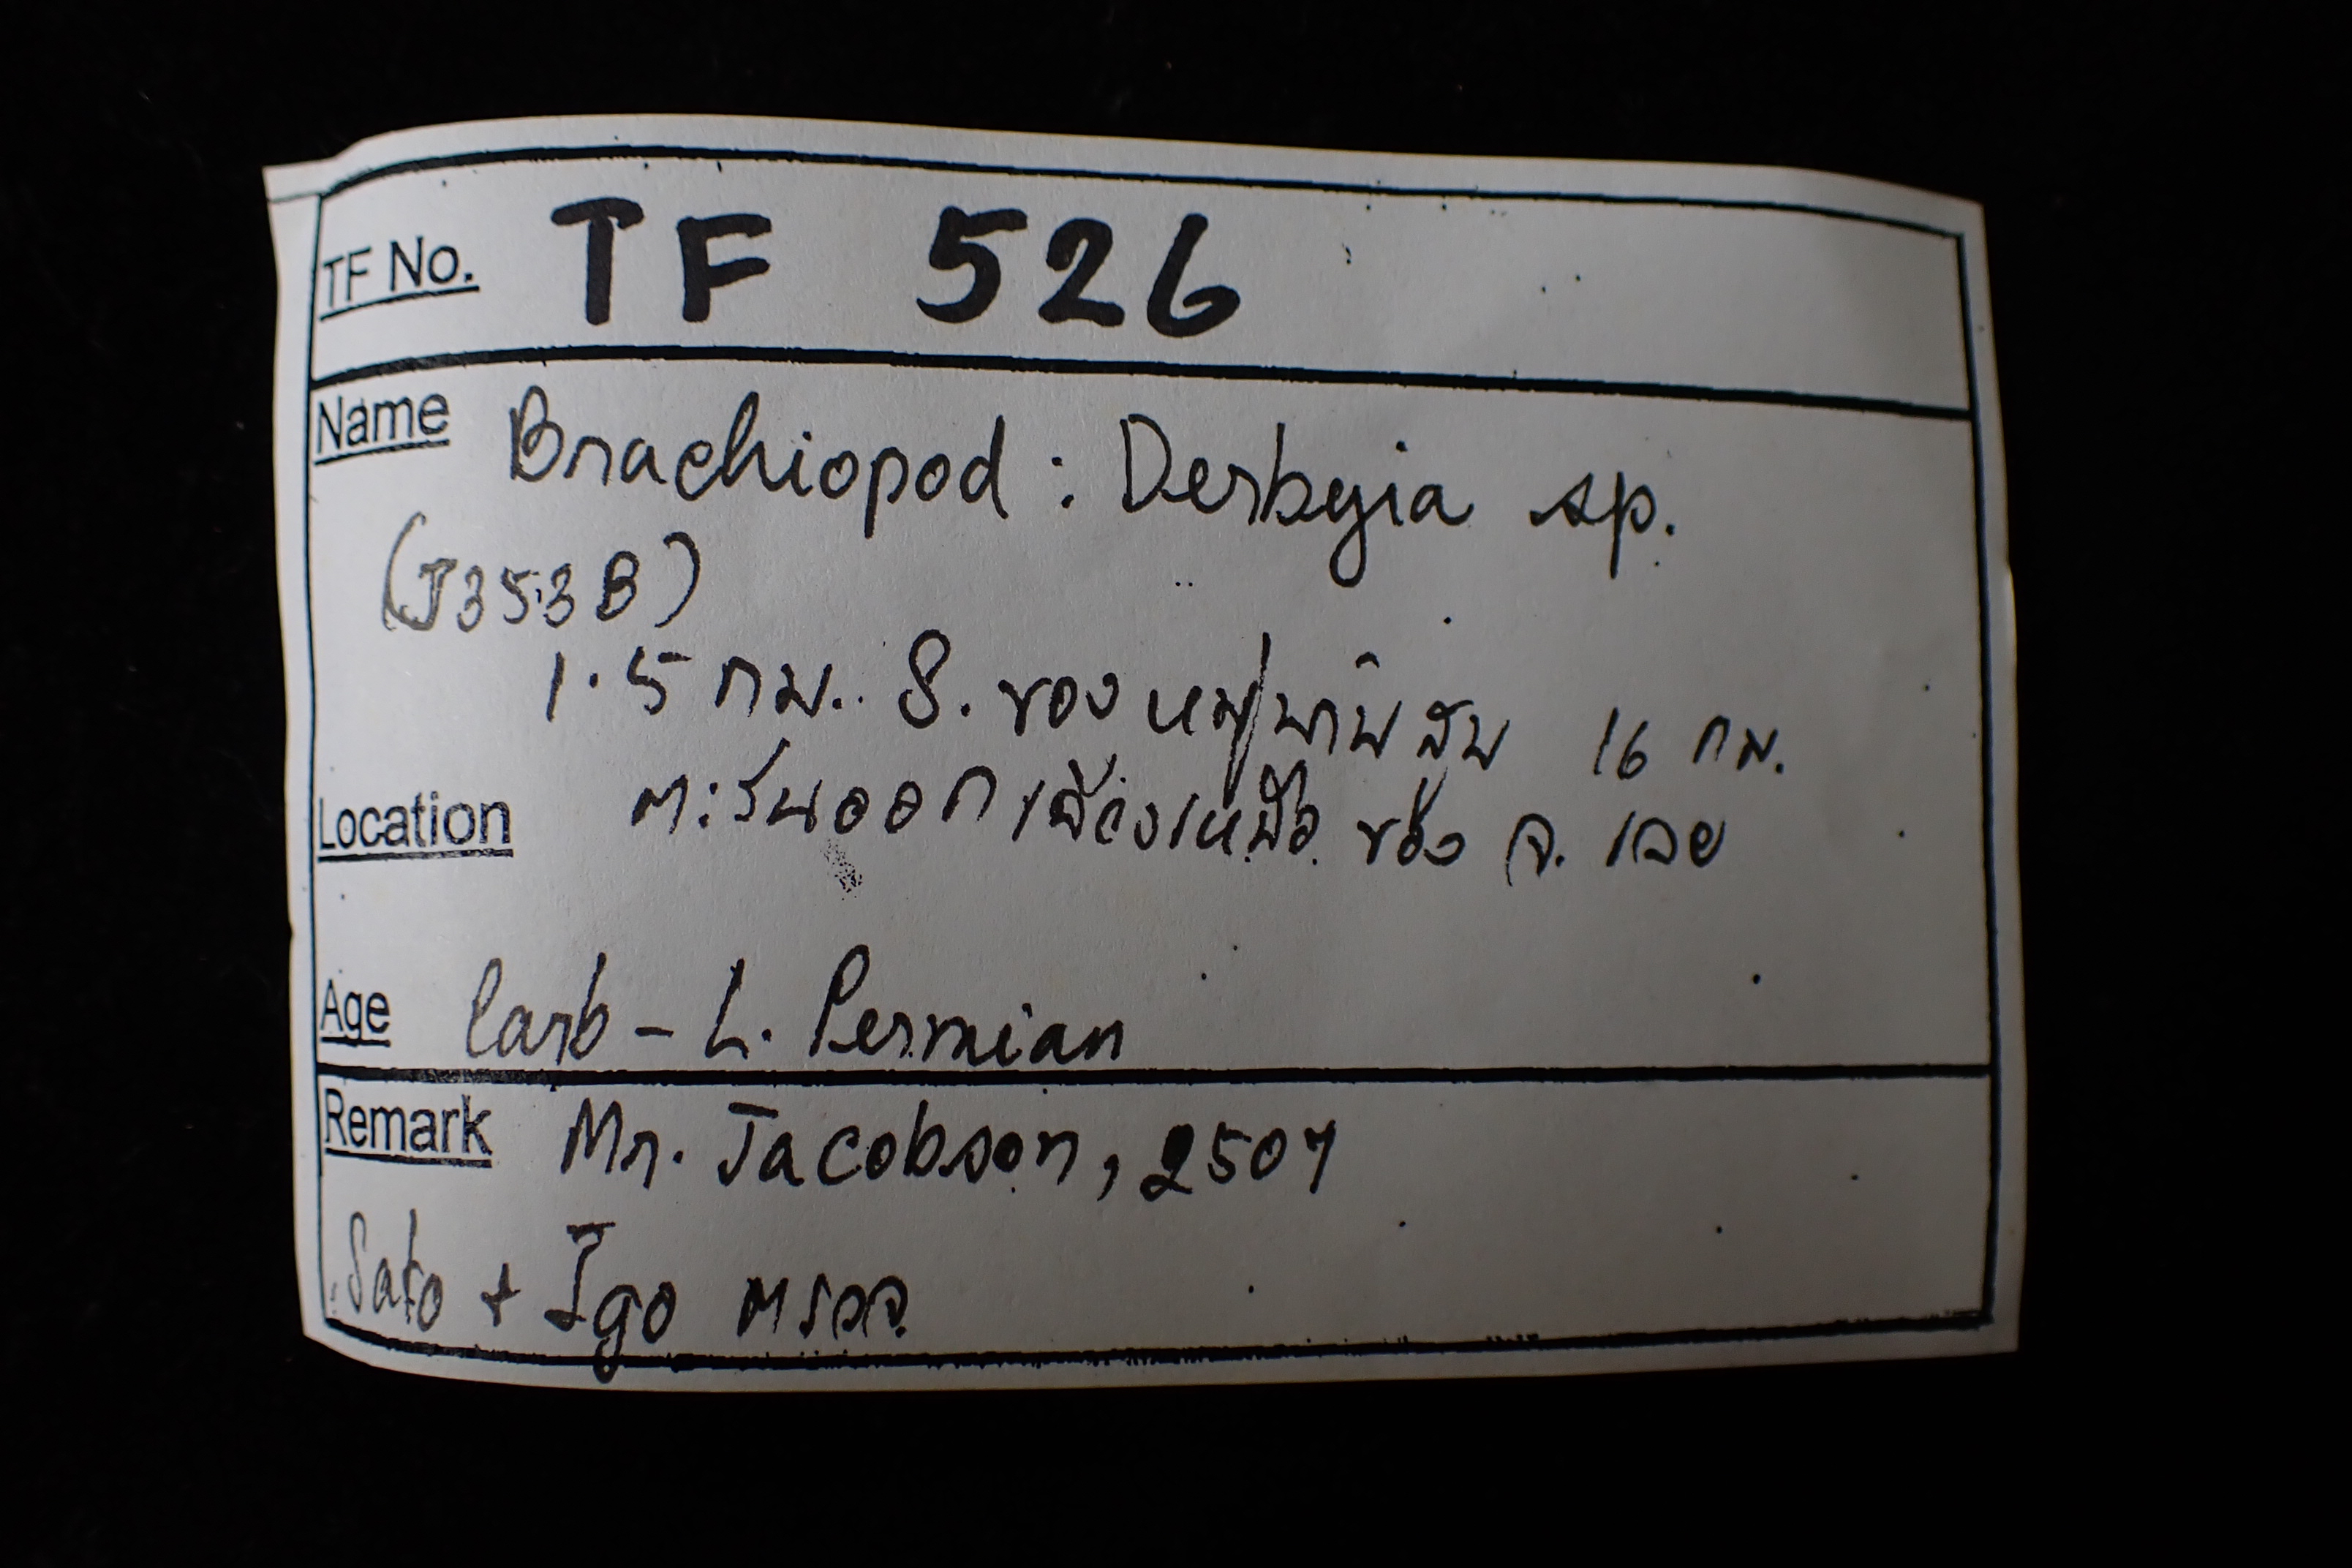 TF No. TF 526
Name Brachiopod : Derbyia sp.
(J353B)
1.5 กม. S. ของ 16 กม.
Location ตะวันออกเฉียงเหนือ ของ จ. เลย
Age Carb - L. Permian
Remark Mr. Jacobson, 2507
Sato + Igo ตรวจ